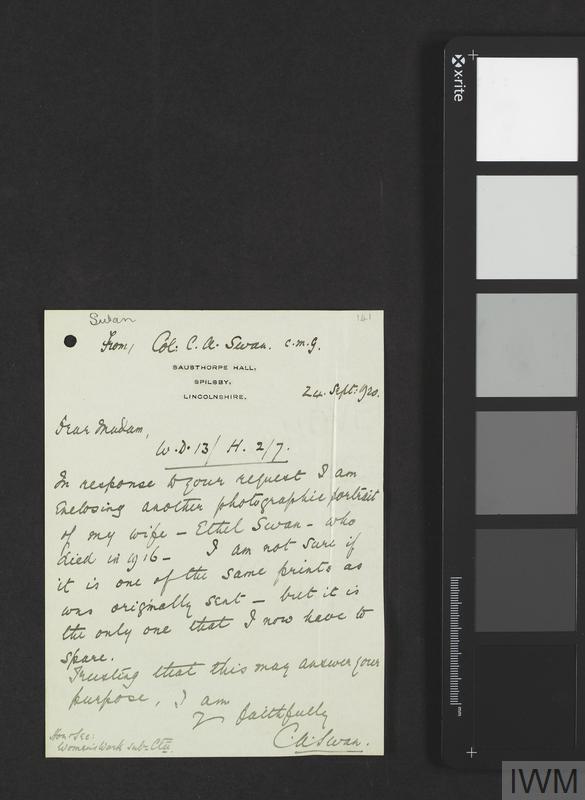 Swan
141
From, Col: C. A. Swan. C.M.G.
SAUSTHORPE HALL,
SPILSBY,
LINCOLNSHIRE.
24. Sept: 1920.
Dear Madam,
W.D. 13/ H. 2/7.
In response to your request I am
enclosing another photographic portrait
of my wife - Ethel Swan - who
died in 1916 - I am not sure if
it is one of the same prints as
was originally sent - but it is
the only one that I now have to
spare.
Trusting that this may answer your
purpose, I am
faithfully
C. A. Swan.
Hon: Sec:
Women's Work Sub-Cttee.
x-rite
mm
IWM